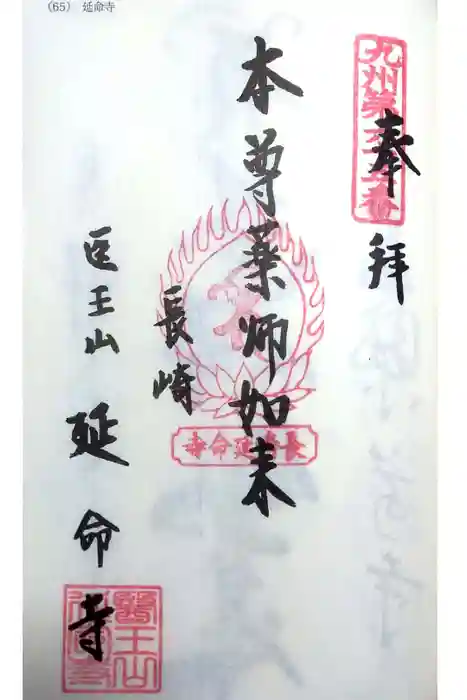 (65) 延命寺
九州第六十五番
奉拝
本尊薬師如来
長崎
長崎延命寺
医王山
延命寺
醫王山
延命寺